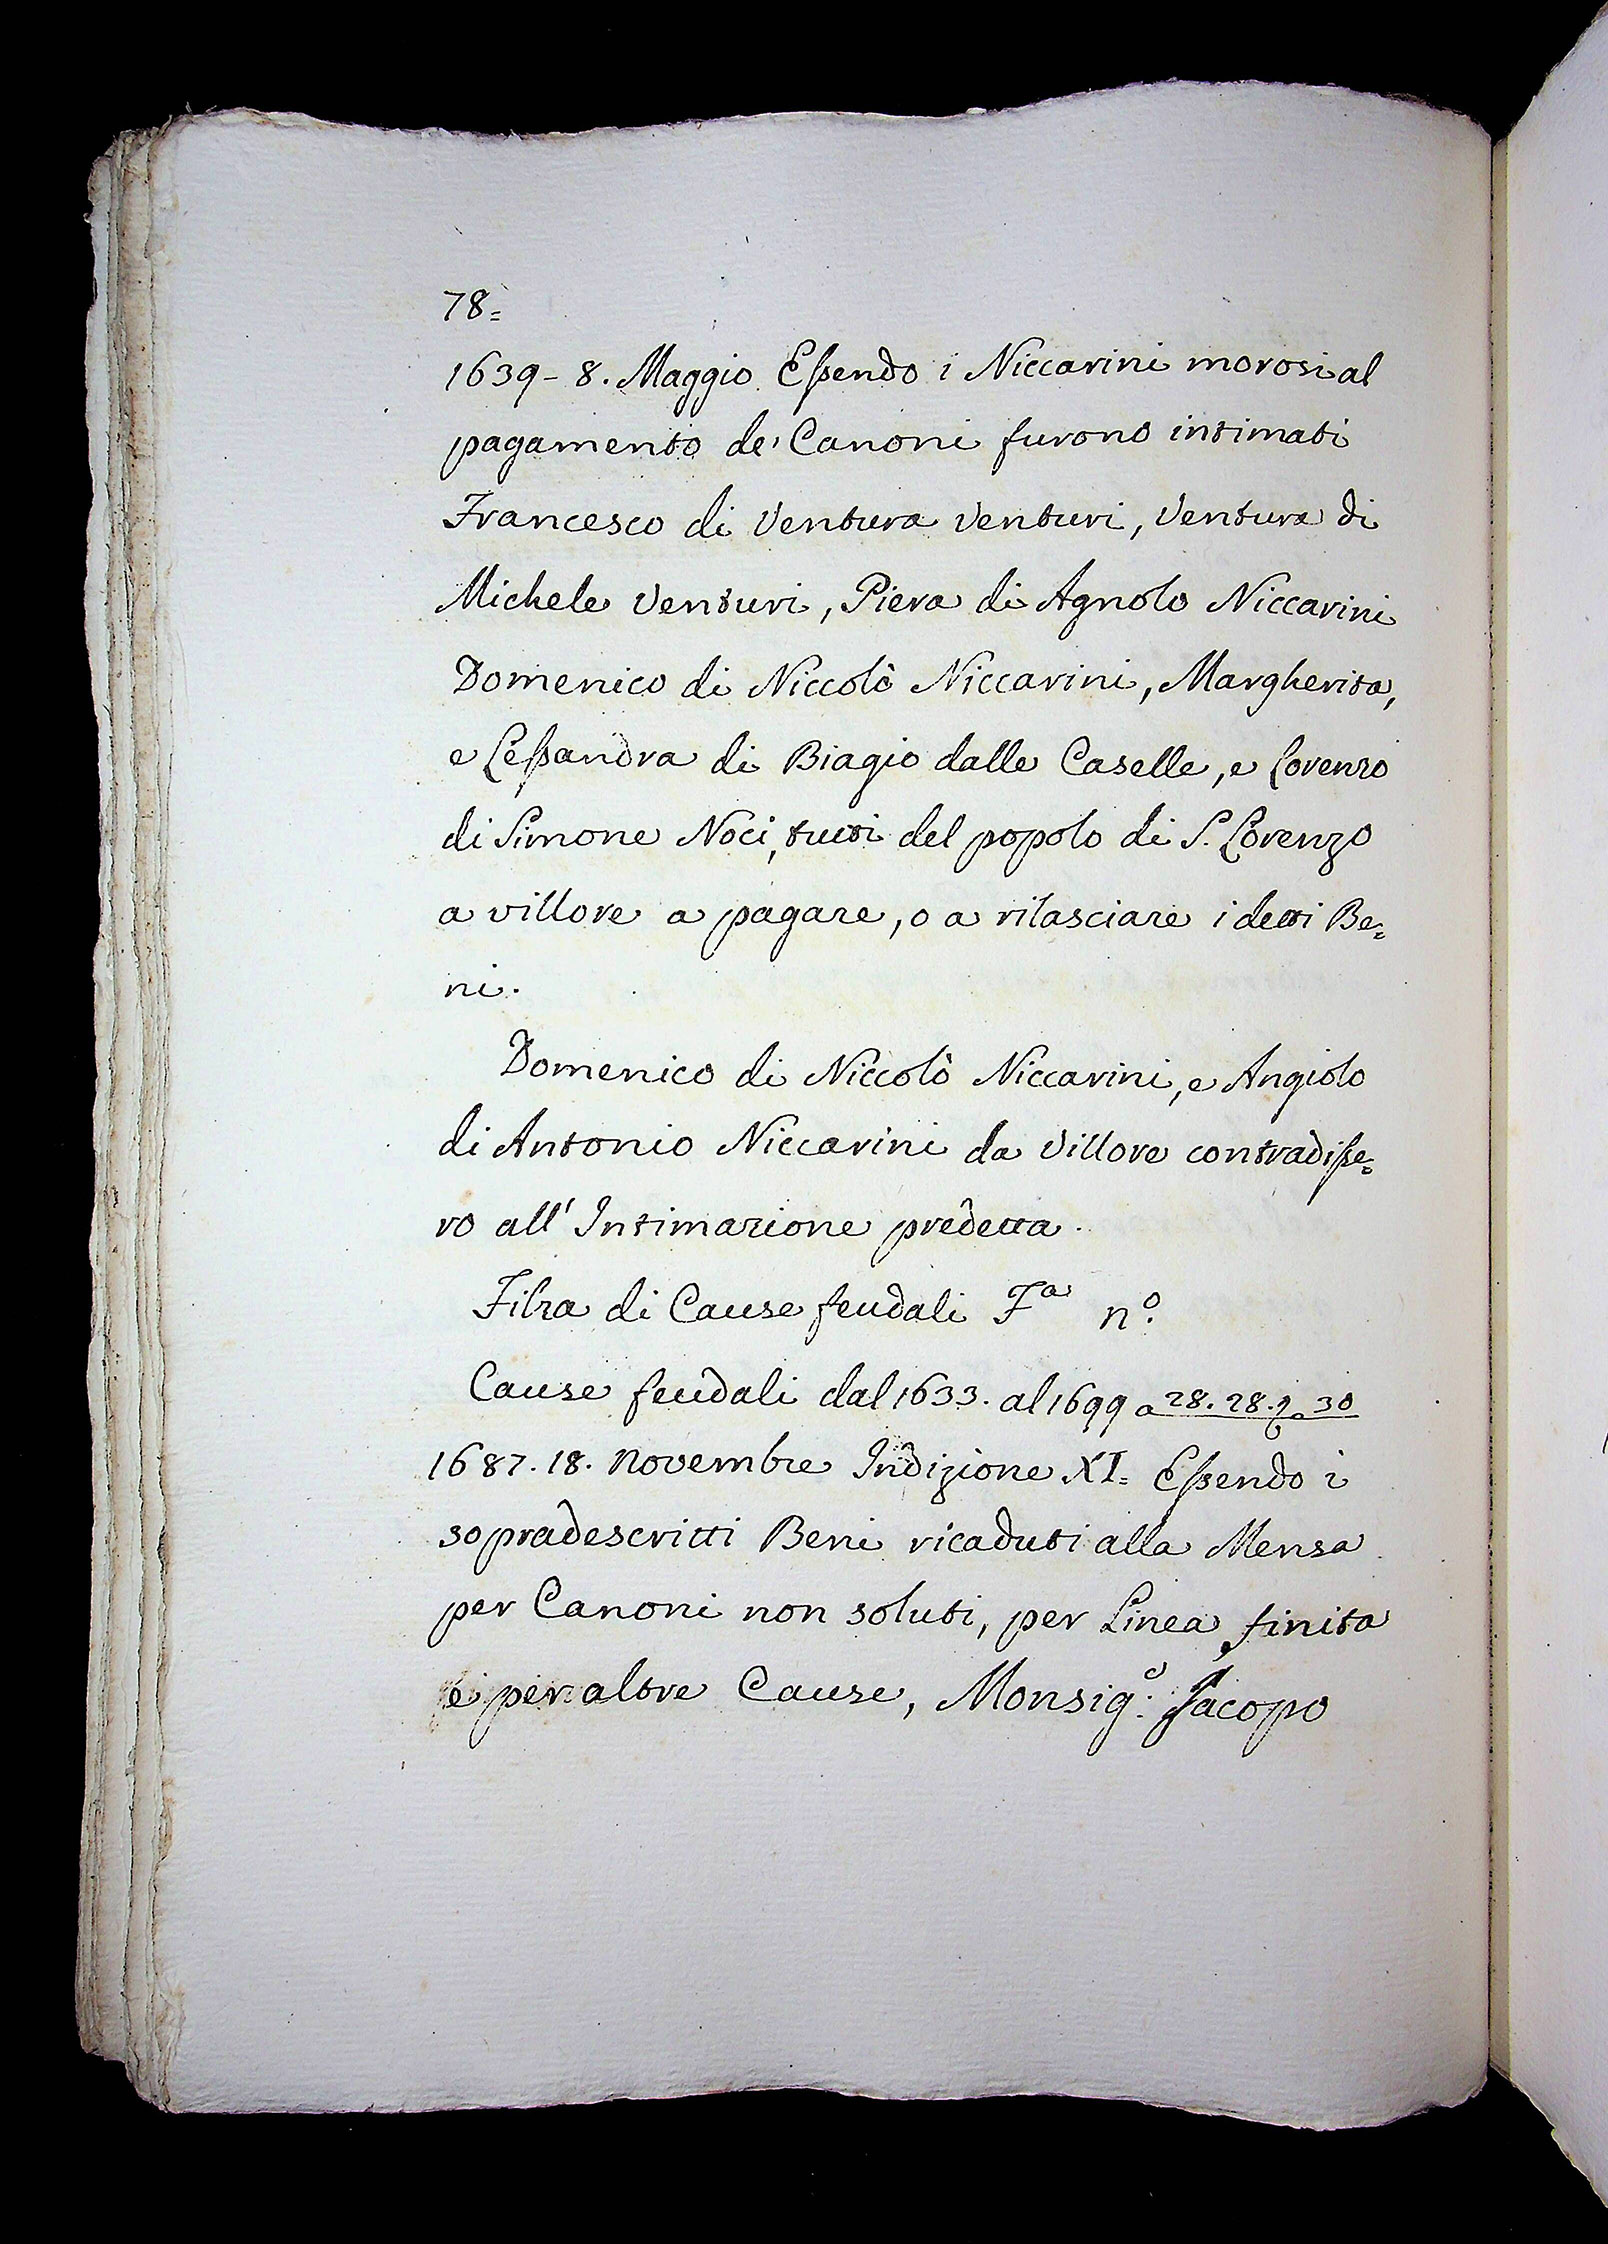 78=
1639 - 8. Maggio Essendo i Niccarini morosi al
pagamento de' Canoni furono intimati
Francesco di Ventura Venturi, Ventura di
Michele Venturi, Piera di Agnolo Niccarini
Domenico di Niccolò Niccarini, Margherita,
e Lessandra di Biagio dalle Caselle, e Lorenzo
di Simone Noci, tutti del popolo di S. Lorenzo
a villore a pagare, o a rilasciare i detti Be=
ni.
Domenico di Niccolò Niccarini, e Angiolo
di Antonio Niccarini da Villore contradisse=
ro all' Intimazione predetta.
Filza di Cause feudali Fa no.
Cause feudali dal 1633. al 1699 a 28. 28. 30
1687. 18. Novembre Indizione XI= Essendo i
sopradescritti Beni ricaduti alla Mensa
per Canoni non soluti, per Linea finita
e per altre Cause, Monsig.e Jacopo